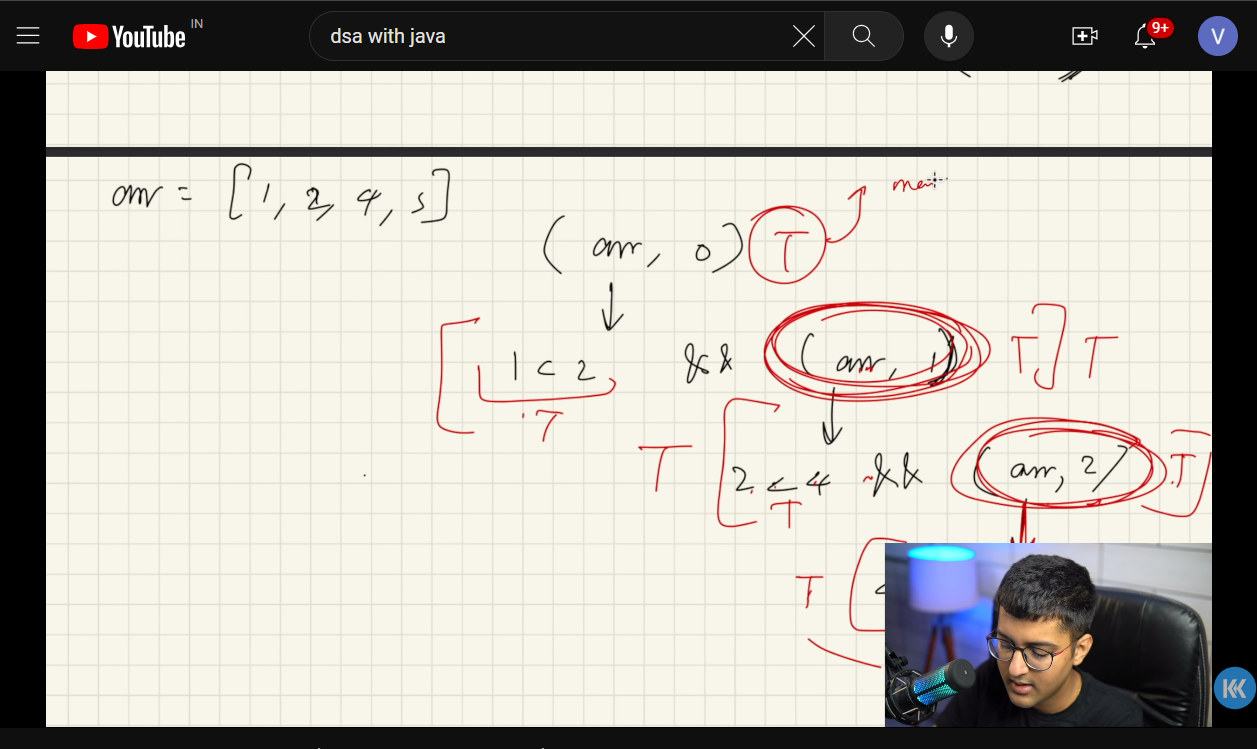 YouTube IN
dsa with java
9+
V
arr = [1, 2, 4, 5]
(arr, 0) T
1 < 2 && (arr, 1) T ] T
T
T [ 2 < 4 && (arr, 2) T ]
T
T [